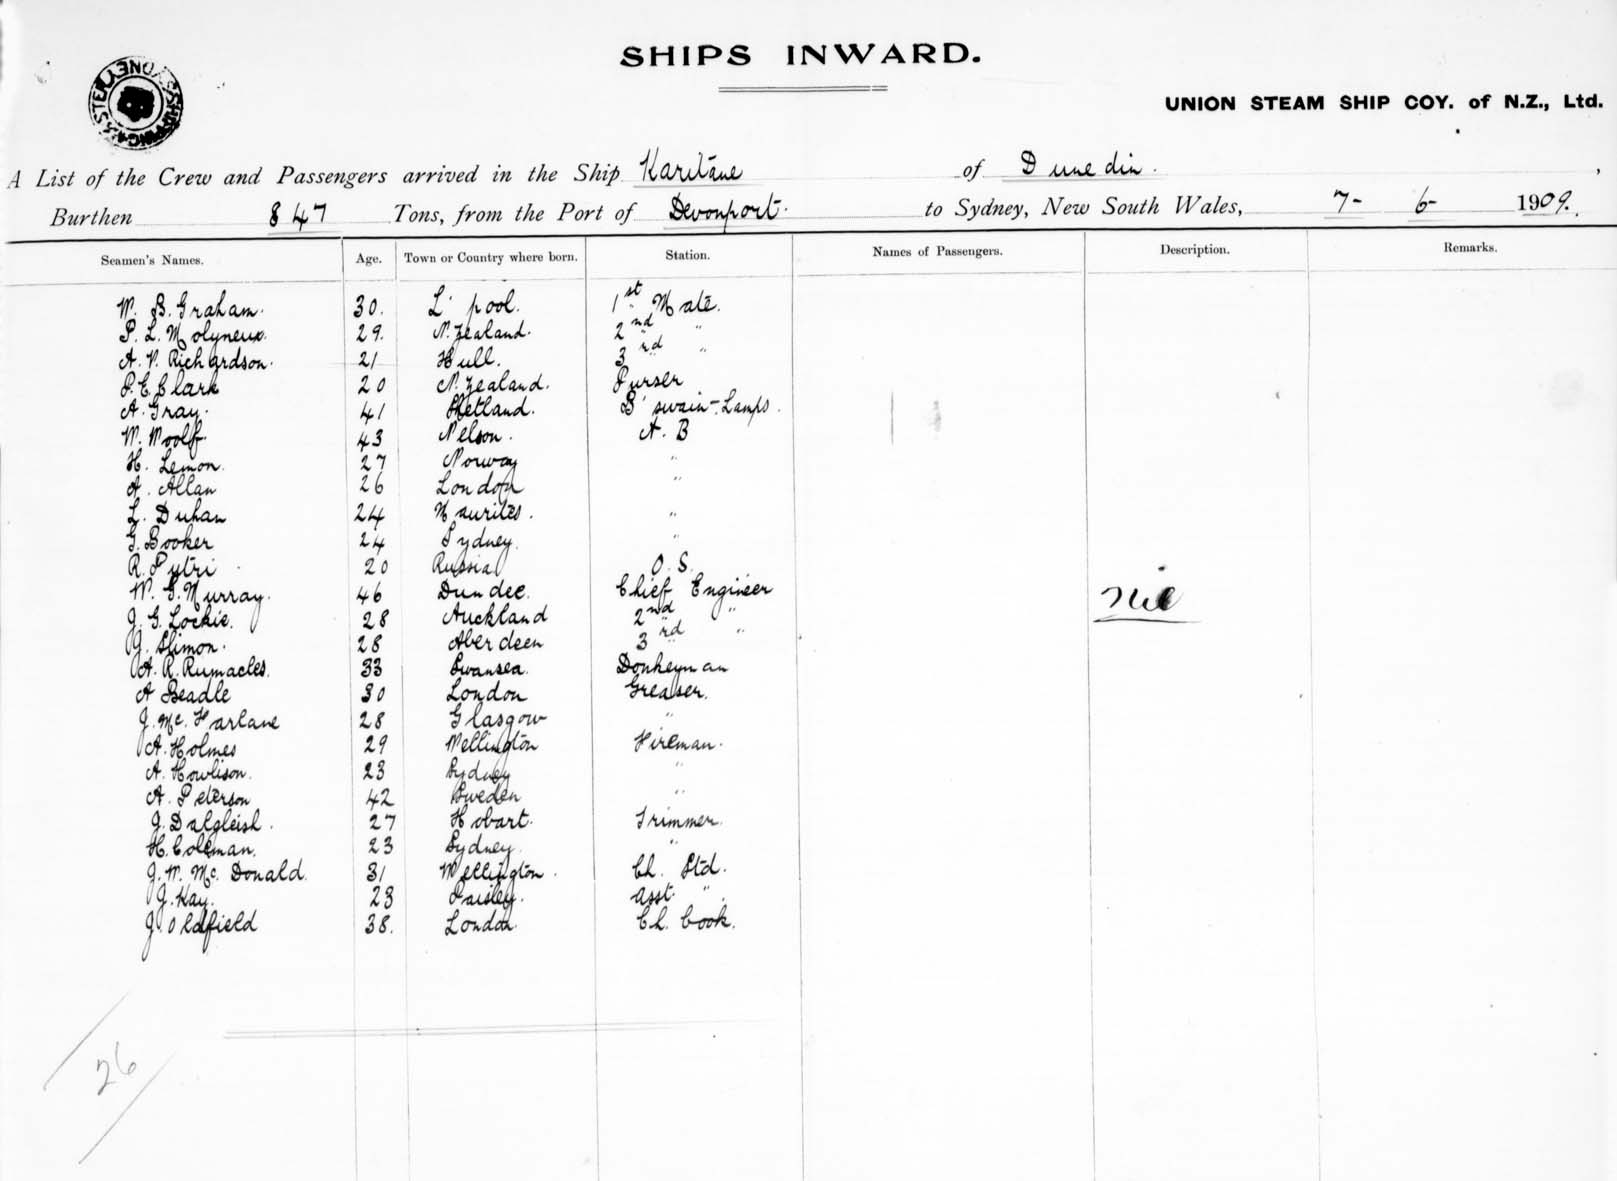 SHIPS INWARD.
UNION STEAM SHIP COY. of N.Z., Ltd.
A List of the Crew and Passengers arrived in the Ship Karitane of Dunedin.,
Burthen 847 Tons, from the Port of Devonport. to Sydney, New South Wales, 7- 6- 1909.
Seamen's Names. Age. Town or Country where born. Station. Names of Passengers. Description. Remarks.
W. B. Graham. 30. L'pool. 1st Mate.
P. L. Molyneux. 29. N. Zealand. 2nd "
A. V. Richardson. 21 Hull. 3rd "
P. E. Clark 20 N. Zealand. Purser
A. Gray. 41 Shetland. B'swain-Lamps.
W. Woolf. 43 Nelson. A. B
H. Lemon. 27 Norway "
A. Allan 26 London "
L. Duhan 24 Maurites. "
G. Booker 24 Sydney. "
R. Putri 20 Russia O. S.
W. G. Murray. 46 Dundee. Chief Engineer nil
J. G. Lockie. 28 Auckland 2nd "
J. Slimon. 28 Aberdeen 3rd "
A. R. Rumacles. 33 Swansea. Donkeyman
A Beadle 30 London Greaser.
J. Mc. Farlane 28 Glasgow "
A. Holmes 29 Wellington Fireman.
A. Howlison. 23 Sydney "
A. Peterson 42 Sweden "
J. Dalgleish. 27 Hobart. Trimmer.
H. Coleman. 23 Sydney. "
J. W. Mc. Donald. 31 Wellington. Ch. Std.
J. Kay. 23 Paisley. asst. "
J. Oldfield 38. London. Ch. Cook.
26